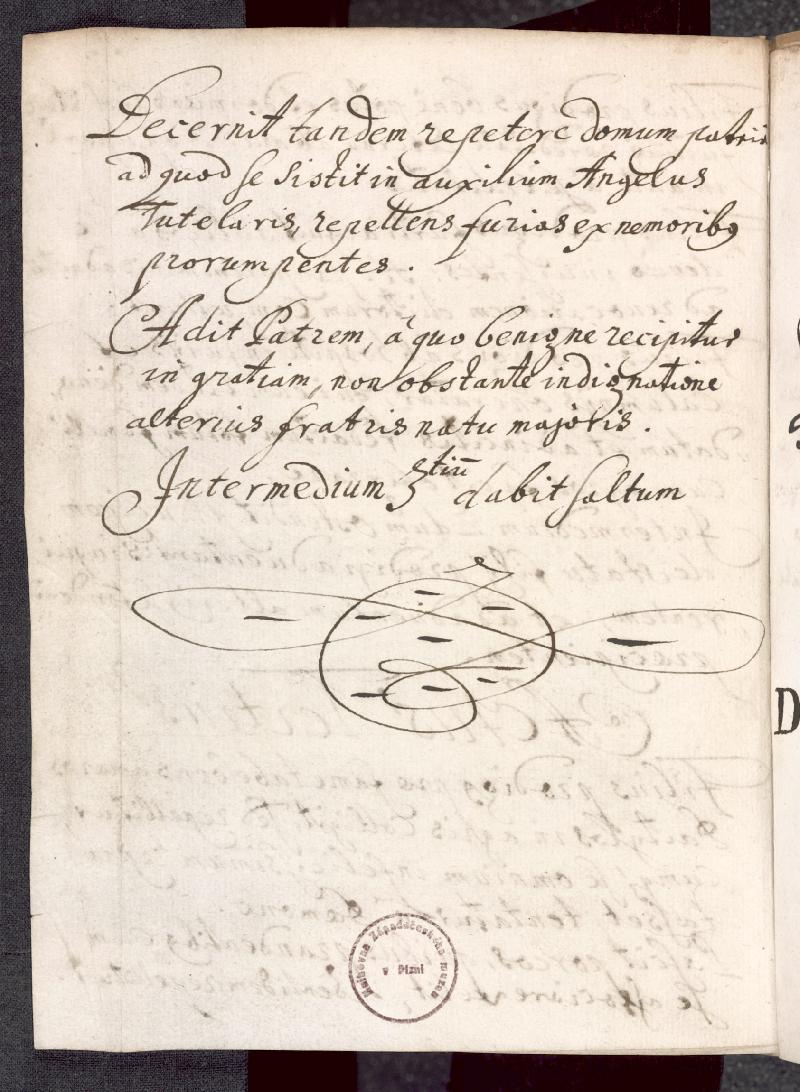 Decernit tandem repetere domum patriā
ad quod se sistit in auxilium Angelus
Tutelaris, repellens furias ex nemoribꝯ
prorumpentes.
Adit Patrem, â quo benigne recipitur
in gratiam, non obstante indignatione
alterius fratris natu majoris.
Intermedium 3tiū dabit saltum
Knihovna Západočeského muzea
v Plzni
D